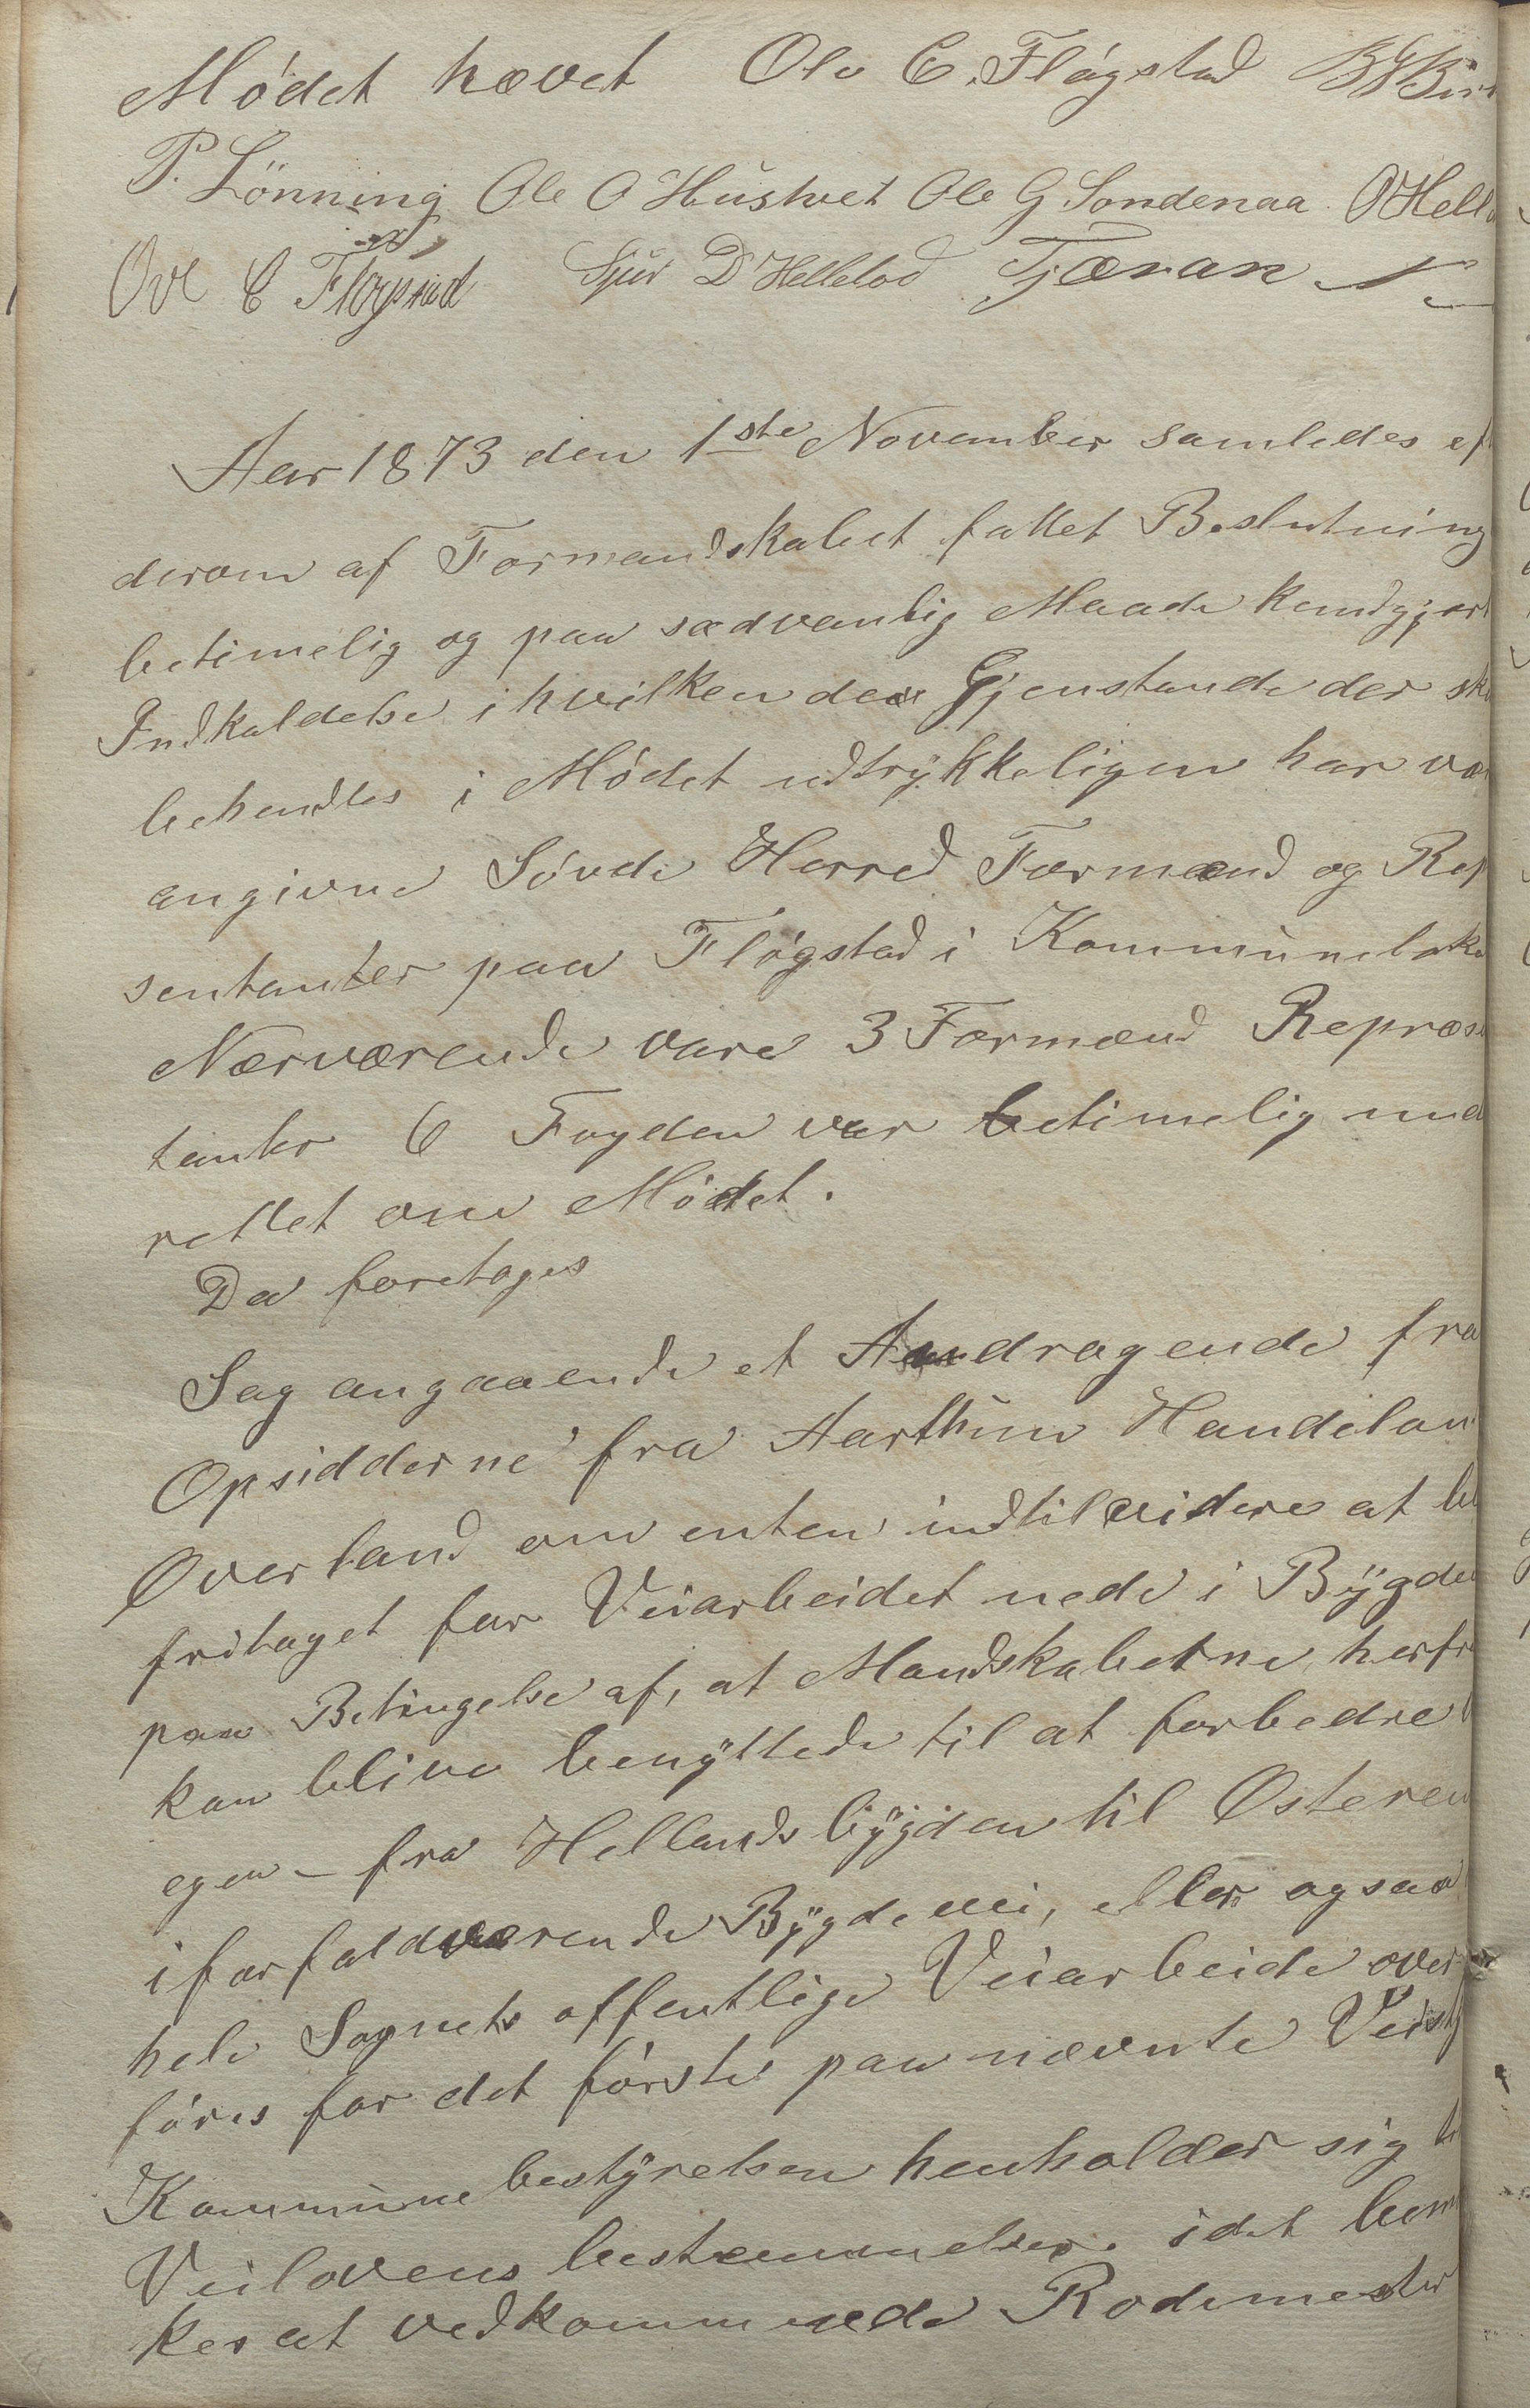 Mødet hævet Ole C. Fløgstad
P. Lönning Ole O Hustvet Ole G Söndenaa O Hell
Ove C Fløgstad Sjur D Helleland Tjæran
Aar 1873 den 1ste November samledes ef
derom af Formandskabet fattet Beslutning
betimelig og paa sædvanlig Maade kundgjort
Indkaldelse i hvilken der Gjenstande der sk
behandles i Mødet udtrykkeligen har væ
angivne Søvde Herred Formænd og Rep
sentanter paa Fløgstad i Kommunelok
Nærværende vare 3 Formænd Repræs
tanter 6 Fogden var betimelig und
rettet om Mødet.
Da foretoges
Sag angaaende et Andragende fra
Opsidderne fra Aarthun Handelan
Overland om enten indtilvidere at bl
fritaget for Veiarbeidet nede i Bygde
paa Betingelse af, at Mandskaberne herfr
kan blive benyttede til at forbedre
egen – fra Hellandsbygden til Osteren
iforfaldværende Bygdevei, eller ogsaa
hele Sognets offentlige Veiarbeide over
føres for det første paa nævnte Veist
Kommunebestyrelsen henholder sig t
Veilovens bestemmelser. idet bem
kes at vedkommende Rodemester